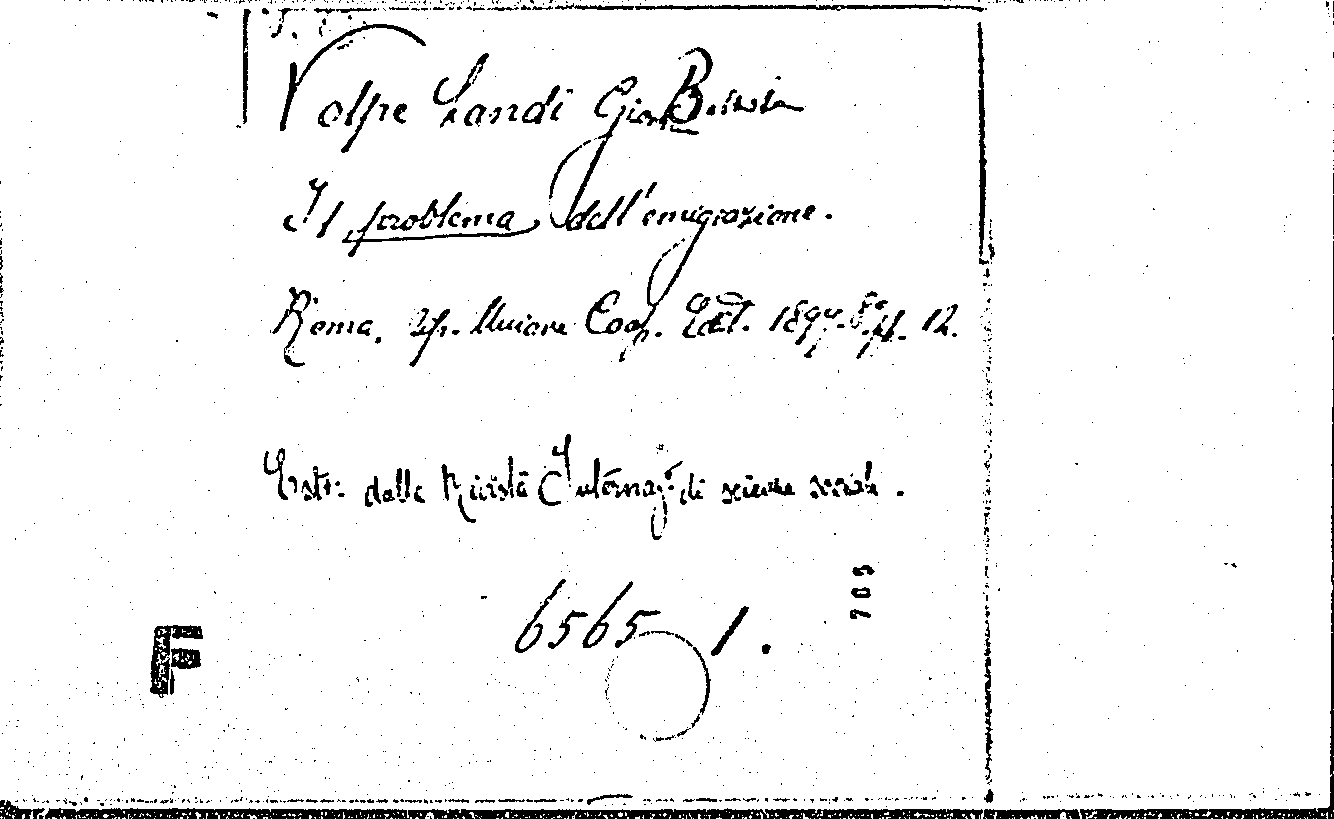 Volpe Landi Giov. Battista
Il problema dell'emigrazione.
Roma. Tip. Unione Coop. Edit. 1897. 8° p. 12.
Estr: dalla Rivista Internaz. di scienze sociali.
6565 1.
705
F